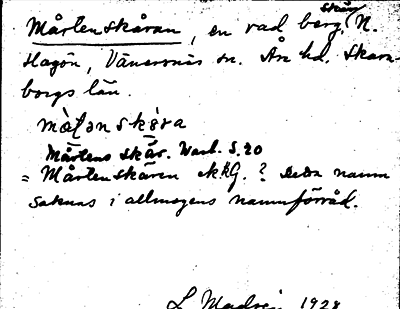 Mårtenskåran, en rad bergskär N.
Hagön, Vänersnäs sn. Ås hd. Skara-
borgs län.
mɷ̀ʈənskɷ̀ra
Mårtens skär. Warb. S. 20
= Mårtenskären ekkG. ? Detta namn
saknas i allmogens namnförråd.
L 1928